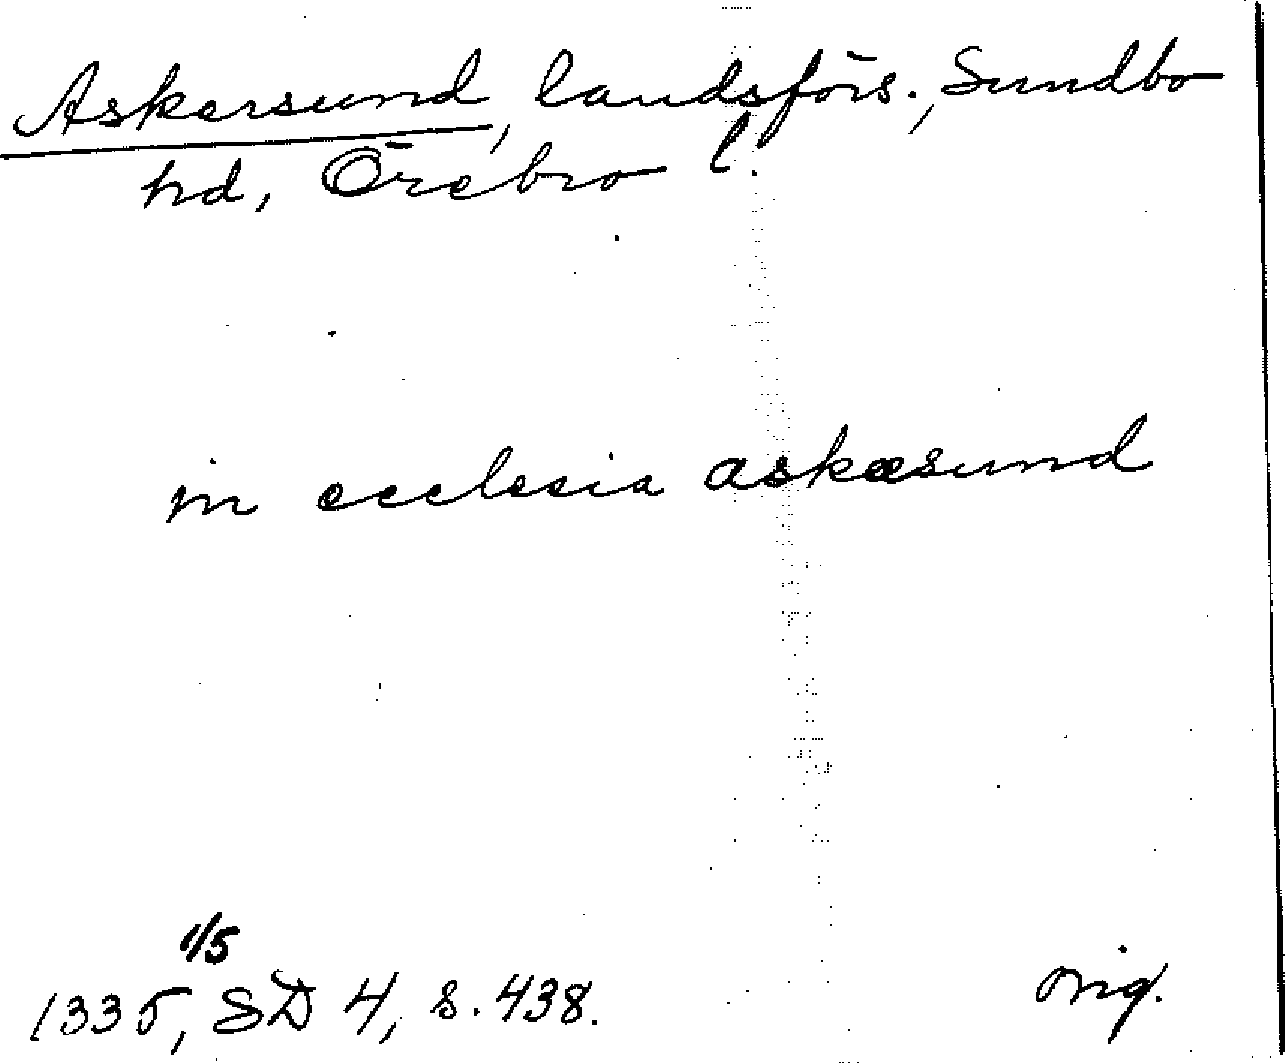 Askersund, landsförs., Sundbo
hd, Örebro l.
in ecclesia askæsund
1/5
1335, SD 4, s. 438.
orig.